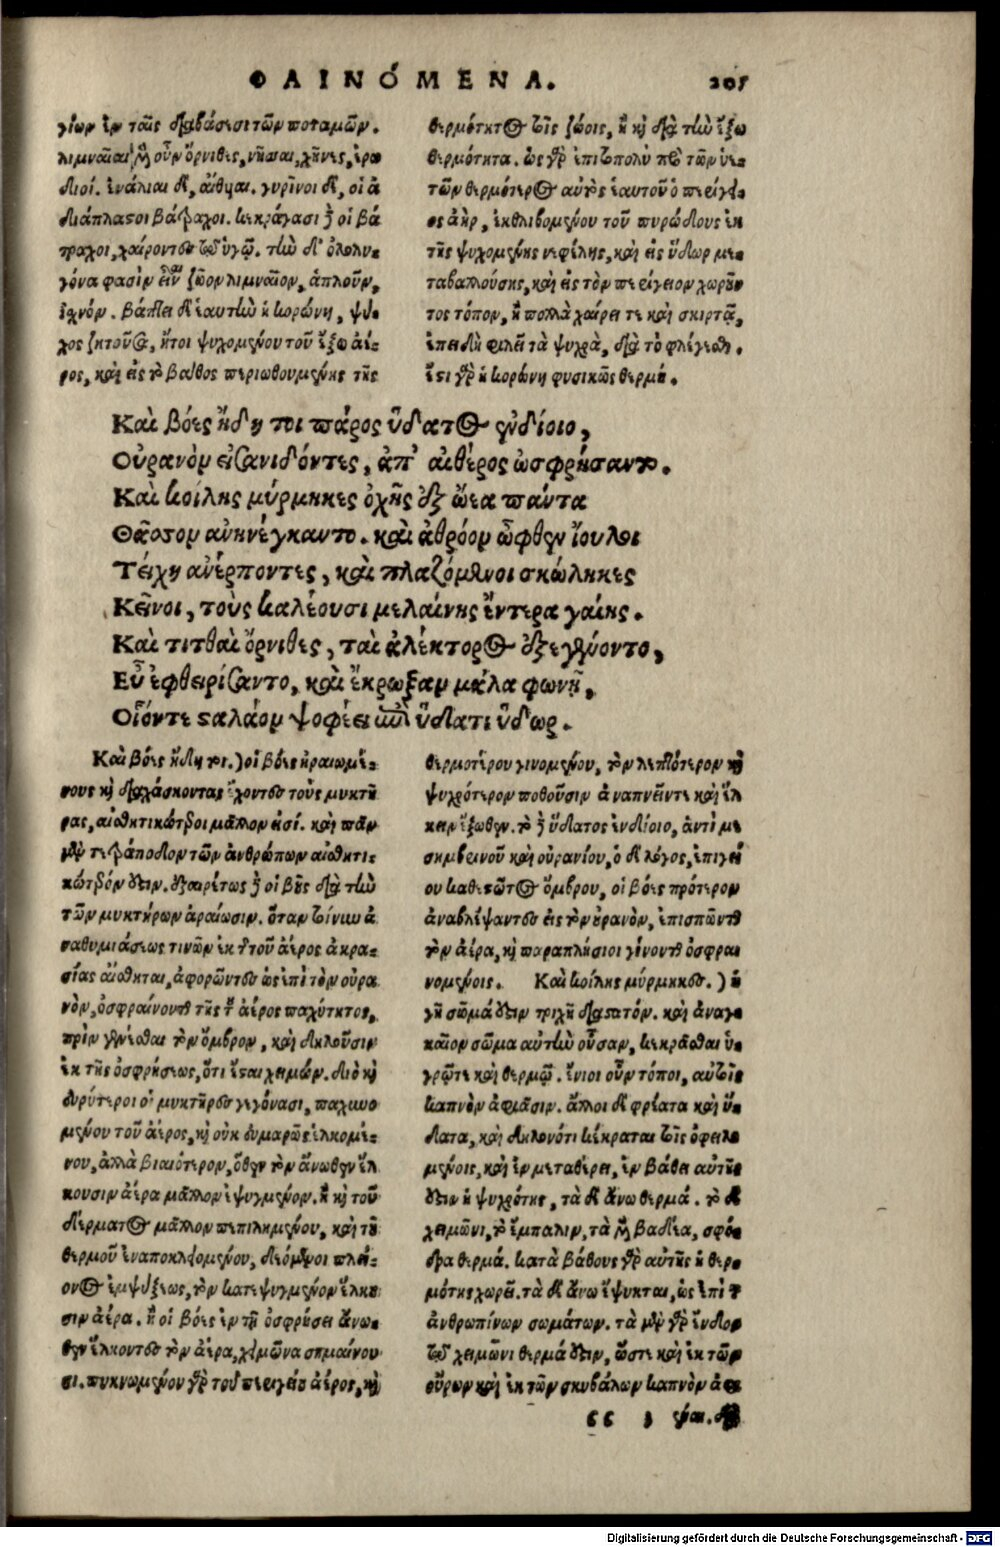 ΦΑΙΝΌΜΕΝΑ. 205
γίων ἐν ταῖς διαβάσεσι τῶν ποταμῶν.
λιμναῖαι μὲν οὖν ὄρνιθες, νῆσσαι, χῆνες, ἐρω
διοί. ἐνάλιαι δὲ, αἴθυιαι. γυρῖνοι δὲ, οἱ ἀ
διάπλαστοι βάτραχοι. κεκράγασι δὲ οἱ βά
τραχοι, χαίροντες τῷ ὑγρῷ. τὴν δ' ὀλολυ-
γόνα φασὶν εἶναι ζῶον λιμναῖον, ἁπλοῦν,
ἰσχνόν. βάπτει δὲ ἑαυτὴν ἡ κορώνη, ψύ-
χος ζητοῦσα, ἤτοι ψυχομένου τοῦ ἔξω ἀέ-
ρος, καὶ εἰς τὸ βάθος περιωθουμένης τῆς
θερμότητος τοῖς ζώοις, ἢ καὶ διὰ τὴν ἔξω
θερμότητα. ὡς γὰρ ἐπιτοπολὺ πρὸ τῶν ὑε-
τῶν θερμότερος αὐτὸς ἑαυτοῦ ὁ περίγει-
ος ἀὴρ, ἐκθλιβομένου τοῦ πυρώδους ἐκ
τῆς ψυχομένης νεφέλης, καὶ εἰς ὕδωρ με-
ταβαλλούσης, καὶ εἰς τὸν περίγειον χωροῦν-
τος τόπον, ἢ πολλὰ χαίρει τε καὶ σκιρτᾷ,
ἐπειδὴ φιλεῖ τὰ ψυχρὰ, διὰ τὸ φλέγεσθαι.
ἔστι γὰρ ἡ κορώνη φυσικῶς θερμή.
Καὶ βόες ἤδη τοι πάρος ὕδατος ἐνδίοιο,
Οὐρανὸν εἰσανιδόντες, ἀπ' αἰθέρος ὠσφρήσαντο.
Καὶ κοίλης μύρμηκες ὀχῆς ἐξ ὤεα πάντα
Θᾶσσον ἀνηνέγκαντο. καὶ ἀθρόον ὦφθεν ἴουλοι
Τείχη ἀνέρποντες, καὶ πλαζόμενοι σκώληκες
Κεῖνοι, τοὺς καλέουσι μελαίνης ἔντερα γαίης.
Καὶ τιτθαὶ ὄρνιθες, ταὶ ἀλέκτορος ἐξεγένοντο,
Εὖ ἐφθειρίσαντο, καὶ ἔκρωξαν μάλα φωνῇ,
Οἷόντε σταλάον ψοφέει ἐπὶ ὕδατι ὕδωρ.
Καὶ βόες ἤδη τοι.) οἱ βόες ἠραιωμέ-
νους καὶ διαχάσκοντας ἔχοντες τοὺς μυκτῆ
ρας, αἰσθητικώτεροι μᾶλλον εἰσί. καὶ πᾶν
μὲν τετράποδον τῶν ἀνθρώπων αἰσθητι-
κώτερόν ἐστιν. ἐξαιρέτως δὲ οἱ βοῦς διὰ τὴν
τῶν μυκτήρων ἀραίωσιν. ὅταν τοίνυν ἀ
ναθυμιάσεως τινῶν ἐκ τῆς τοῦ ἀέρος ἀκρα-
σίας αἴσθηται, ἀφορῶντες ὡς ἐπὶ τὸν οὐρα
νὸν, ὀσφραίνονται τῆς τοῦ ἀέρος παχύτητος,
πρὶν γενέσθαι τὸν ὄμβρον, καὶ δηλοῦσιν
ἐκ τῆς ὀσφρήσεως, ὅτι ἔσται χειμών. διὸ καὶ
εὐρύτεροι οἱ μυκτῆρες γεγόνασι, παχυνο
μένου τοῦ ἀέρος, καὶ οὐκ εὐμαρῶς ἑλκομέ-
νου, ἀλλὰ βιαιότερον, ὅθεν τὸν ἄνωθεν ἕλ
κουσιν ἀέρα μᾶλλον ἐψυγμένον. ἢ καὶ τοῦ
δέρματος μᾶλλον πεπιλημένου, καὶ τοῦ
θερμοῦ ἐναποκλειομένου, δεόμενοι πλεί-
ονος ἐμψύξεως, τὸν κατεψυγμένον ἕλκου
σιν ἀέρα. ἢ οἱ βόες ἐν τῇ ὀσφρήσει ἄνω-
θεν ἕλκοντες τὸν ἀέρα, χειμῶνα σημαίνου-
σι. πυκνωμένου γὰρ τοῦ περιγείου ἀέρος, καὶ
θερμοτέρου γινομένου, τὸν λεπτότερον καὶ
ψυχρότερον ποθοῦσιν ἀναπνεῖν τε καὶ ἕλ
κειν ἔξωθεν. τὸ δὲ ὕδατος ἐνδίοιο, ἀντὶ με
σημβεινοῦ καὶ οὐρανίου, ὁ δὲ λόγος, ἐπιγεί
ου καθεστῶτος ὄμβρου, οἱ βόες πρότερον
ἀναβλέψαντες εἰς τὸν οὐρανὸν, ἐπισπῶνται
τὸν ἀέρα, καὶ παραπλήσιοι γίνονται ὀσφραι
νομένοις. Καὶ κοίλης μύρμηκες.) ἡ
γῆ σῶμά ἐστιν τριχῆ διαστατόν. καὶ ἀναγ-
καῖον σῶμα αὐτὴν οὖσαν, κεκρᾶσθαι ὑ-
γρῷ τε καὶ θερμῷ. ἔνιοι οὖν τόποι, αὐτοῖς
καπνὸν ἀφιᾶσιν. ἄλλοι δὲ φρέατα καὶ ὕ-
δατα, καὶ δηλονότι κέκραται τοῖς ὀφειλο
μένοις, καὶ ἐν μεταθέρει, ἐν βάθει αὐτῆς
ἐστιν ἡ ψυχρότης, τὰ δὲ ἄνω θερμά. τῷ δὲ
χειμῶνι, τὸ ἔμπαλιν, τὰ μὲν βαθέα, σφό-
δρα θερμά. κατὰ βάθους γὰρ αὐτῆς ἡ θερ-
μότης χωρεῖ. τὰ δὲ ἄνω ἔψυκται, ὡς ἐπὶ τῶν
ἀνθρωπίνων σωμάτων. τὰ μὲν γὰρ ἔνδον
τῷ χειμῶνι θερμά ἐστιν, ὥστε καὶ ἐκ τῶν
οὔρων καὶ ἐκ τῶν σκυβάλων καπνὸν ἀφι
cc 3